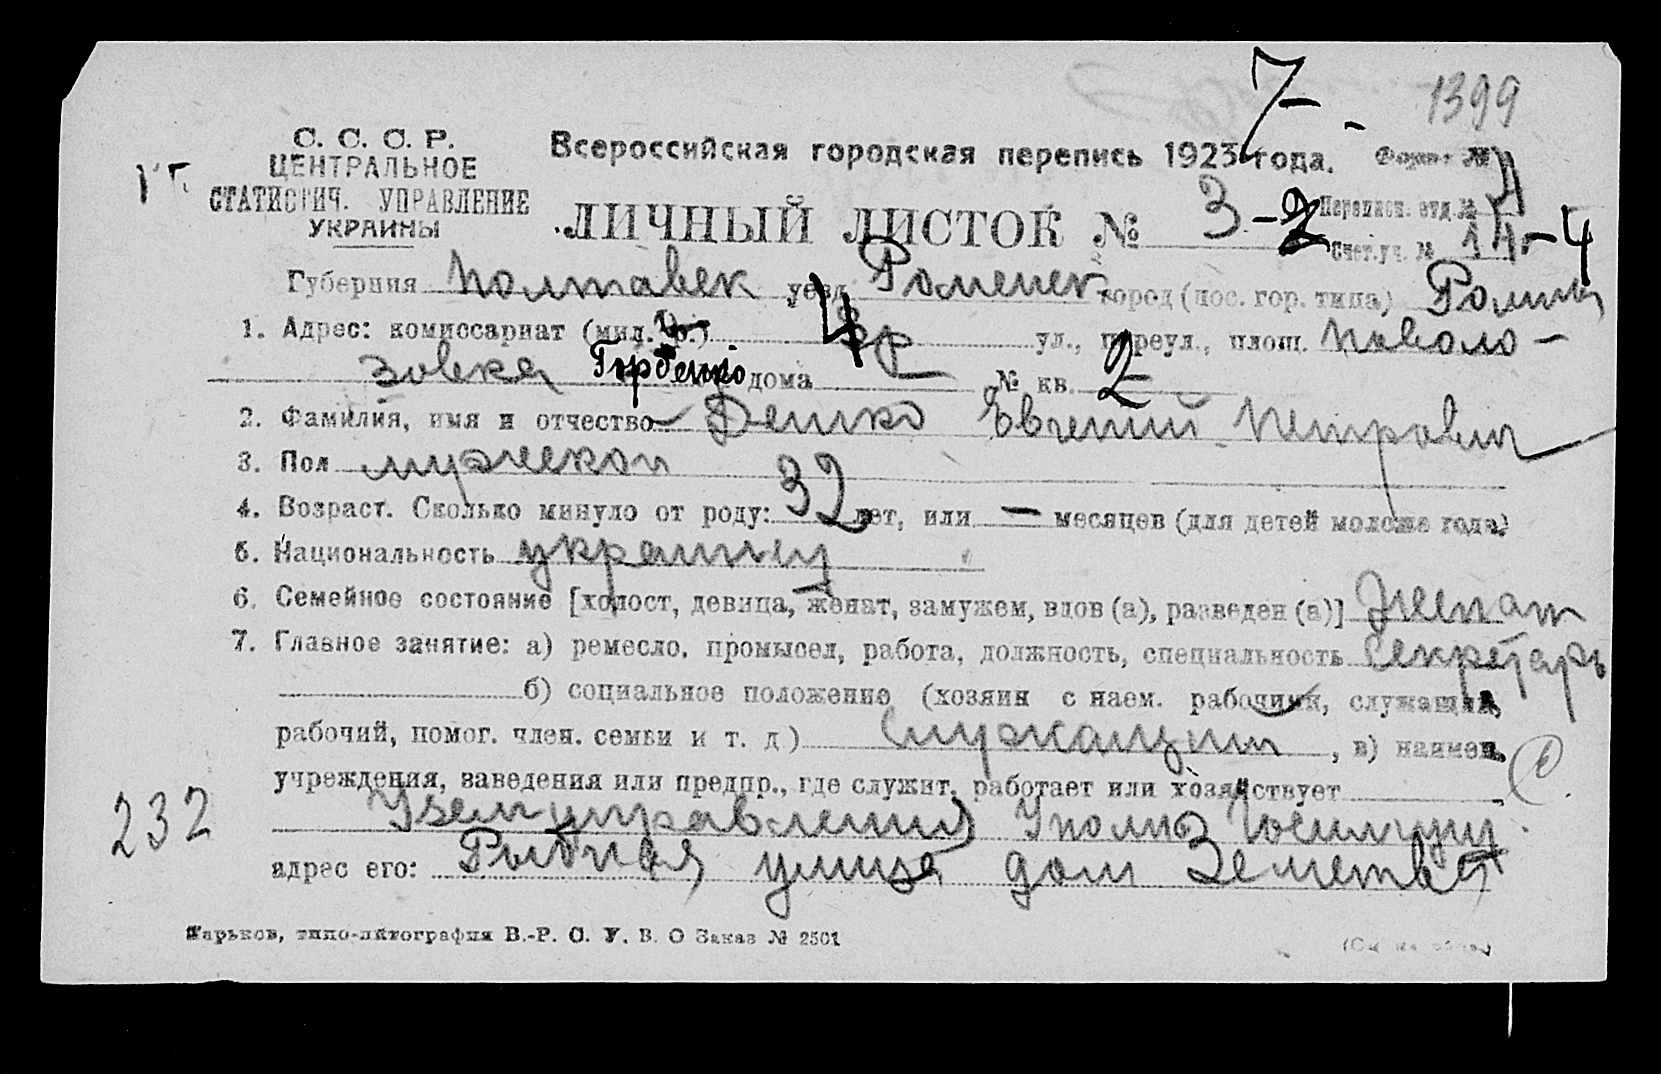 7-
1399
С. С. С. Р.
ЦЕНТРАЛЬНОЕ
СТАТИСТИЧ. УПРАВЛЕНИЕ
УКРАИНЫ
Всероссийская городская перепись 1923 года. Форма №
ЛИЧНЫЙ ЛИСТОК № 3-2 Переписн. отд. №
Счет. уч. № 14-4
Губерния Полтавск уезд Роменск город (пос. гор. типа) Ромны
1. Адрес: комиссариат (мил. р.) 4 ул., переул., площ. Паволо-
зовка дома № кв. 2
2. Фамилия, имя и отчество Дешко Евгений Петрович
3. Пол мужской
4. Возраст. Сколько минуло от роду: 32 лет, или — месяцев (для детей моложе года)
5. Национальность украинец
6. Семейное состояние [холост, девица, женат, замужем, вдов (а), разведен (а)] Женат
7. Главное занятие: а) ремесло, промысел, работа, должность, специальность Секретарь
б) социальное положение (хозяин с наем. рабочими, служащий,
рабочий, помог. член. семьи и т. д) Служащий, в) наимен.
учреждения, заведения или предпр., где служит, работает или хозяйствует
Уземуправления
232
адрес его: Рыбная улица дом Земства
Харьков, типо-литография В.-Р. С. У. В. О Заказ № 2501